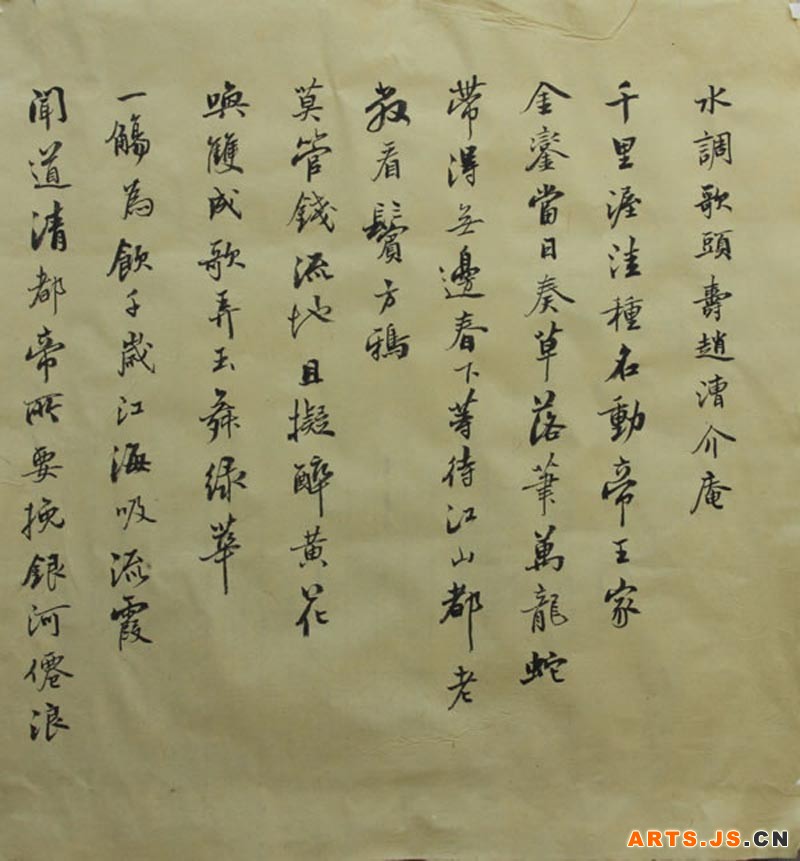 水調歌頭壽趙漕介庵
千里渥洼種名動帝王家
金鑾當日奏草落筆萬龍蛇
帶得無邊春下等待江山都老
教看鬢方鴉
莫管錢流地且擬醉黃花
喚雙成歌弄玉舞綠華
一觴為飲千歲江海吸流霞
聞道清都帝所要挽銀河僊浪
ARTS.JS.CN